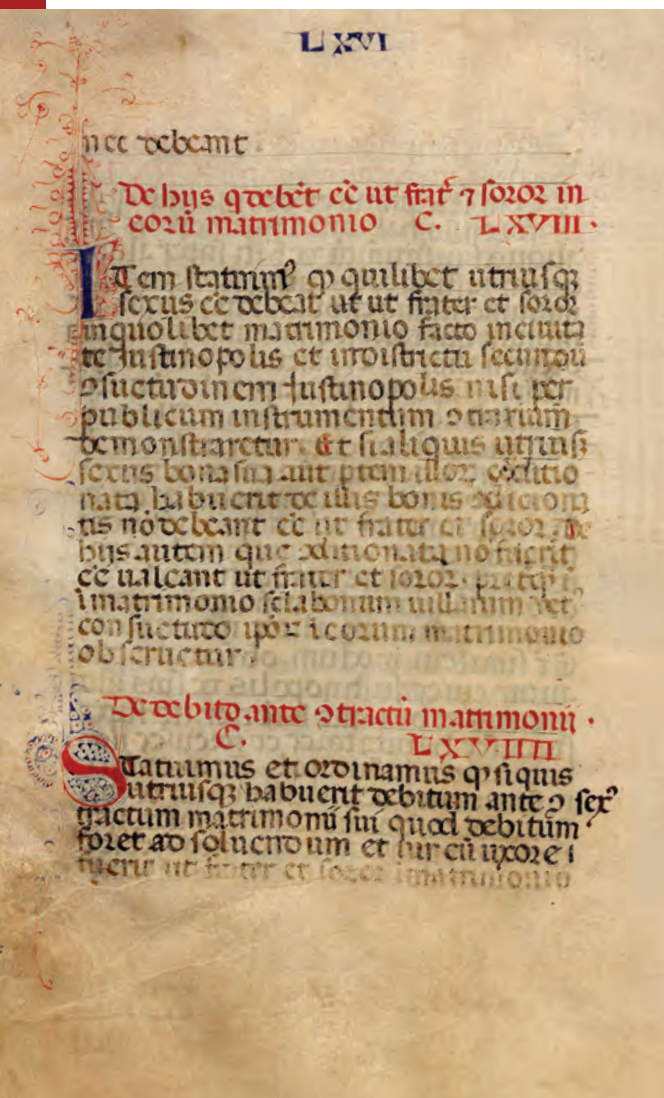 LXVI
nec debeant
De hijs q debēt eē ut frat̄ ⁊ soror in
eorū matrimonio C. LXVIII.
ITem statuim⁹ qͥ quilibet utriusqꝫ
sexus eē debeat ut ut frater et soror
in quolibet matrimonio facto in ciuita
te Iustinopolis et in districtu secundū
ꝯsuetudinem Iustinopolis nisi per
publicum instrumentum ꝯtrarium
demonstraretur. Et si aliquis utriusqꝫ
sexus bona sua aut ptem illoꝝ ꝯditio
nata habuerit de illis bonis ꝯditiona
tis nō debeant eē ut frater et soror. De
hijs autem que ꝯditionata nō fuerit
eē ualeant ut frater et soror.
ī matrimonio
consuetudo ipoꝝ ī eorum matrimonio
obseruetur.
De debito ante ꝯtractū matrimonii.
C. LXVIIII
STatuimus et ordinamus qͥ si quis
utriusqꝫ habuerit debitum ante ꝯ sex⁹
tractum matrimonii sui quod debitum
foret ad soluendum et sit cū uxore i
ut frater et soror ī matrimonio